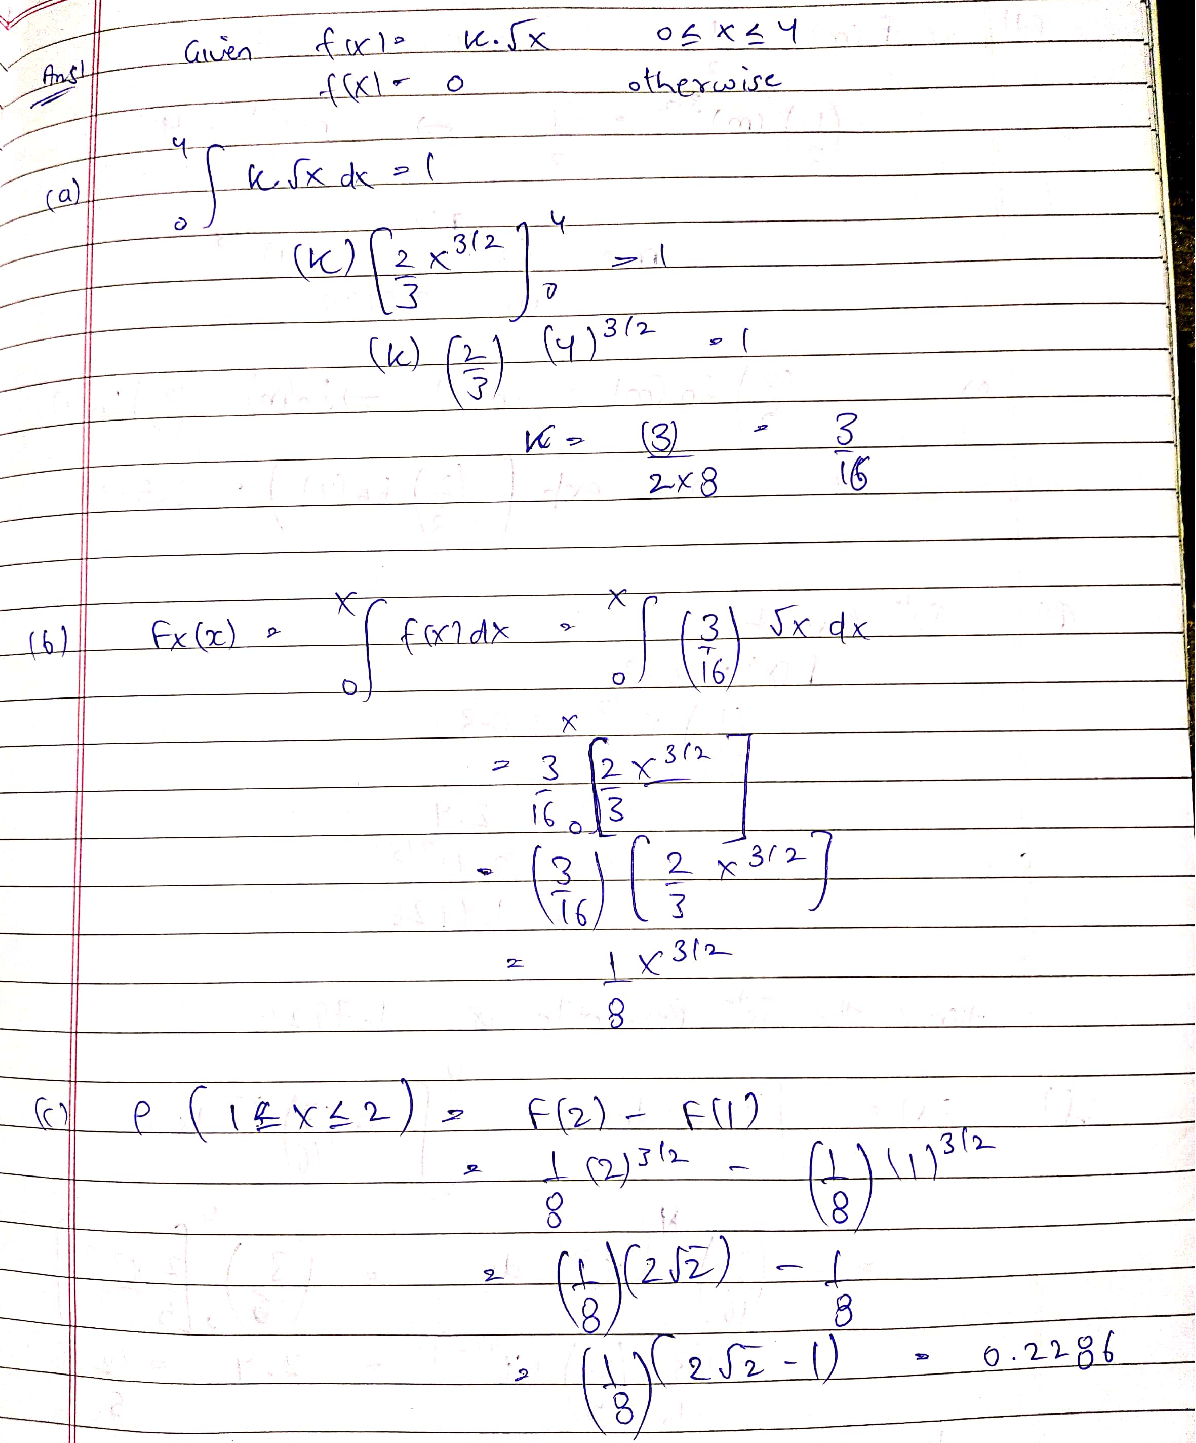 Ans1 Given f(x) = k.√x 0 ≤ x ≤ 4
f(x) = 0 otherwise
(a) ∫₀⁴ k.√x dx = 1
(k) [2/3 x^3/2]₀⁴ = 1
(k) (2/3) (4)^3/2 = 1
k = (3)/2×8 = 3/16
(b) Fx(x) = ∫₀ˣ f(x) dx = ∫₀ˣ (3/16) √x dx
= 3/16 ₀ˣ[2/3 x^3/2]
= (3/16) [2/3 x^3/2]
= 1/8 x^3/2
(c) P (1 ≤ x ≤ 2) = F(2) - F(1)
= 1/8 (2)^3/2 - (1/8) (1)^3/2
= (1/8)(2√2) - 1/8
= (1/8)(2√2 - 1) = 0.2286